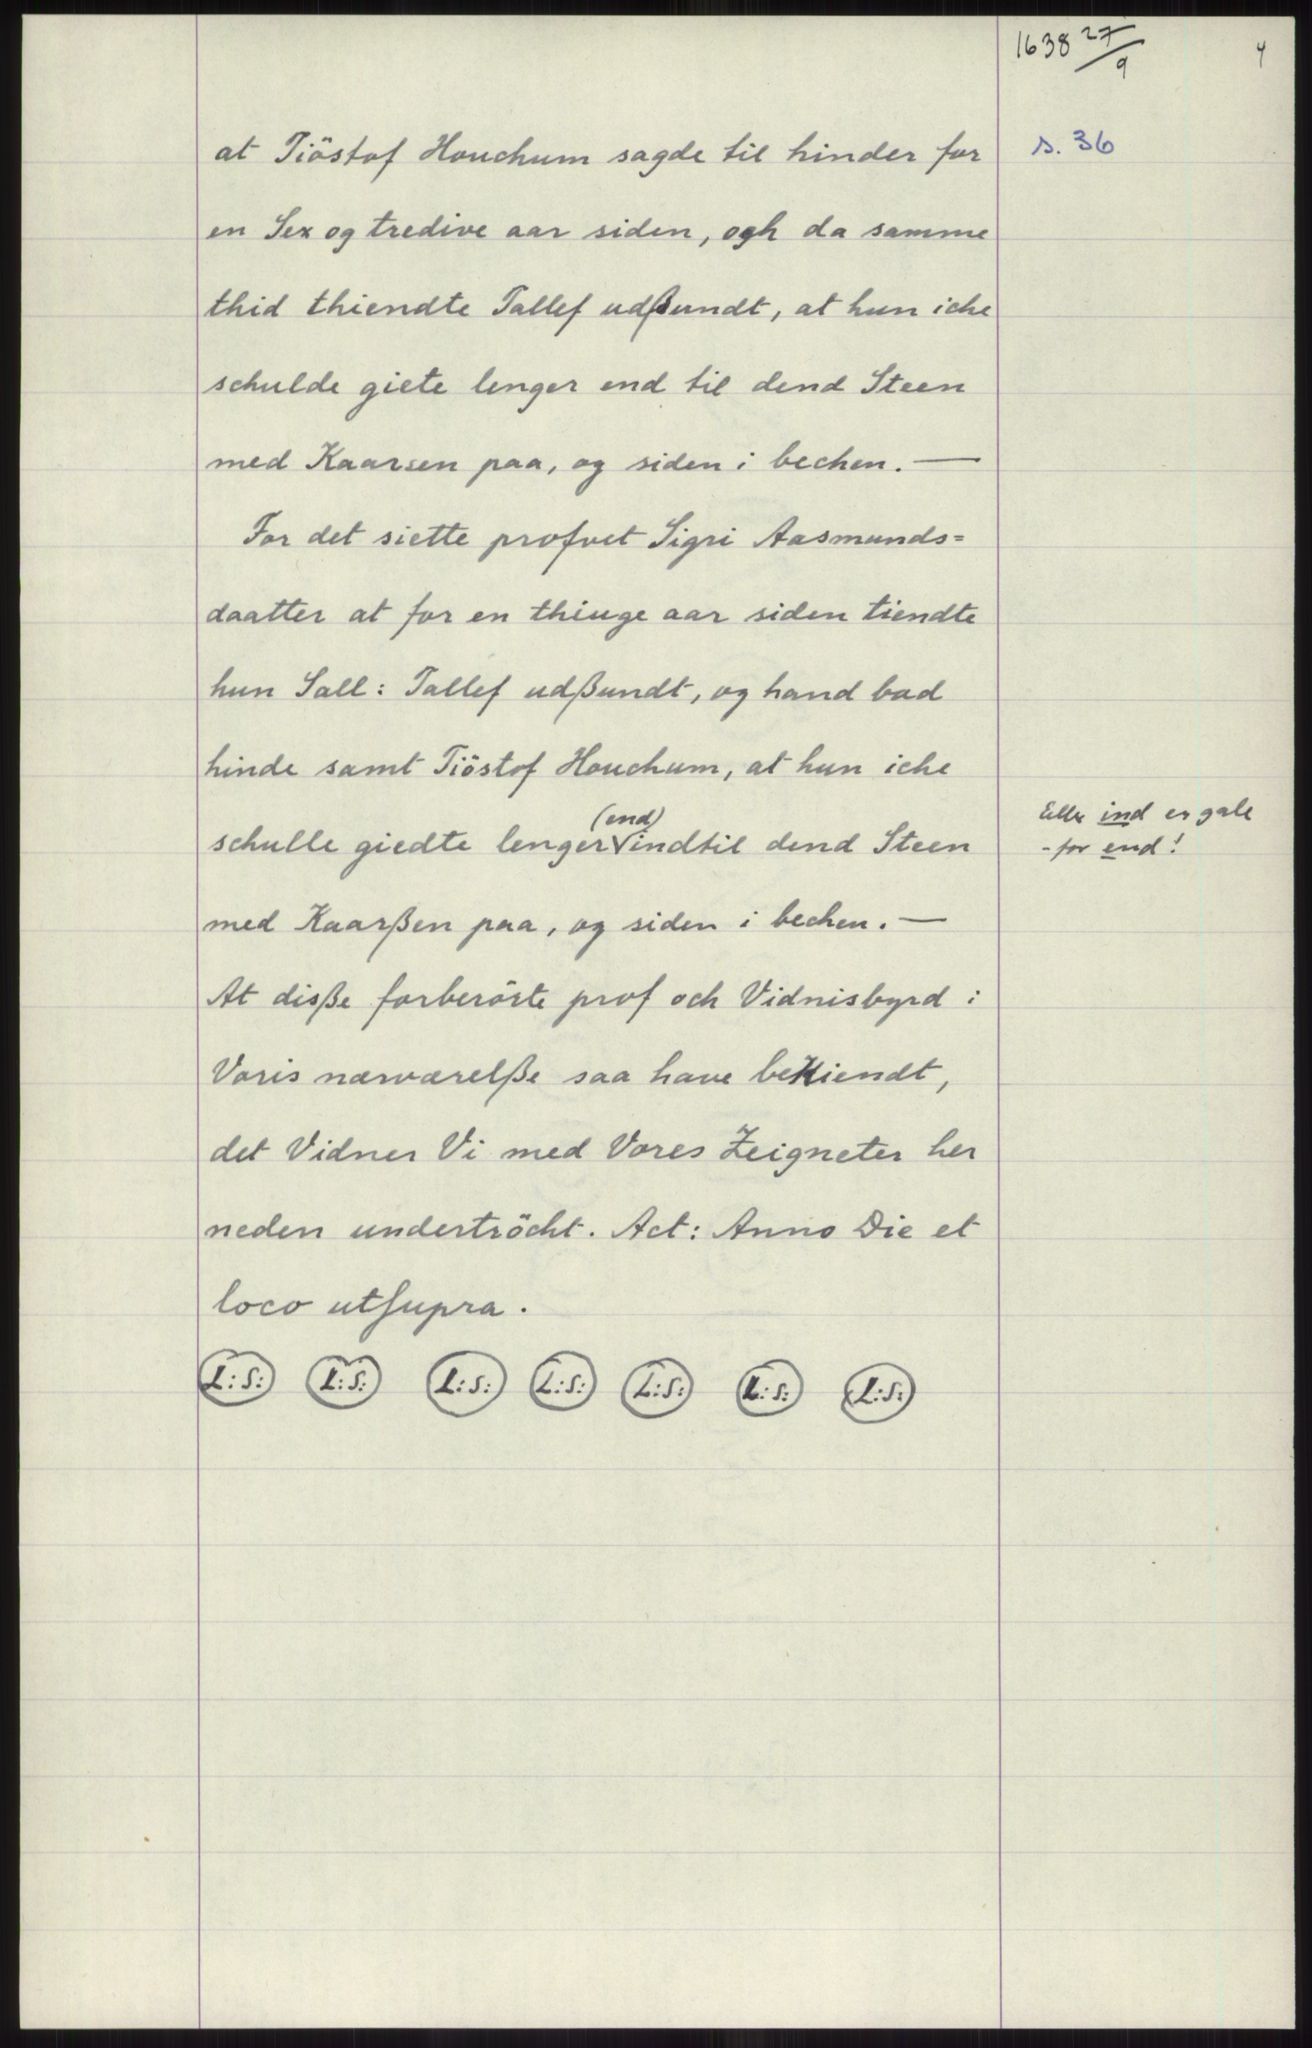 1638 27/9
4
s. 36
at Tiöstof Houchum sagde til hinder for
en Sex og tredive aar siden, ogh da samme
thid thiendte Tallef udßundt, at hun iche
schulde giete lenger end til dend Steen
med Kaarsen paa, og siden i bechen. —
For det siette profvet Sigri Aasmunds=
daatter at for en thiuge aar siden tiendte
hun Sall: Tallef udßundt, og hand bad
hinde samt Tiöstof Houchum, at hun iche
(end)
schulle giedte lenger √indtil dend Steen
Eller ind er gale
- for end!
med Kaarßen paa, og siden i bechen. —
At disße forberörte prof och Vidnisbyrd i
Voris nærværelße saa have beKiendt,
det Vidner Vi med Vores Zeigneter her
neden undertröcht. Act: Anno Die et
loco utsupra.
L:S: L:S: L:S: L:S: L:S: L:S: L:S: